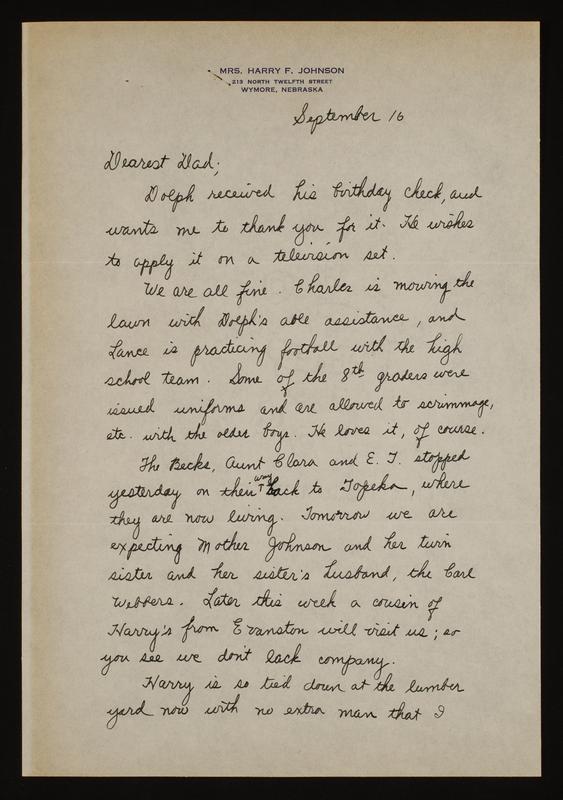 MRS. HARRY F. JOHNSON
213 NORTH TWELFTH STREET
WYMORE, NEBRASKA
September 16
Dearest Dad;
Dolph received his birthday check, and
wants me to thank you for it. He wishes
to apply it on a television set.
We are all fine. Charles is mowing the
lawn with Dolph's able assistance, and
Lance is practicing football with the high
school team. Some of the 8th graders were
issued uniforms and are allowed to scrimmage,
etc. with the older boys. He loves it, of course.
The Becks, Aunt Clara and E. T. stopped
yesterday on their way back to Topeka, where
they are now living. Tomorrow we are
expecting Mother Johnson and her twin
sister and her sister's husband, the Carl
Webbers. Later this week a cousin of
Harry's from Evanston will visit us; so
you see we don't lack company.
Harry is so tied down at the lumber
yard now with no extra man that I